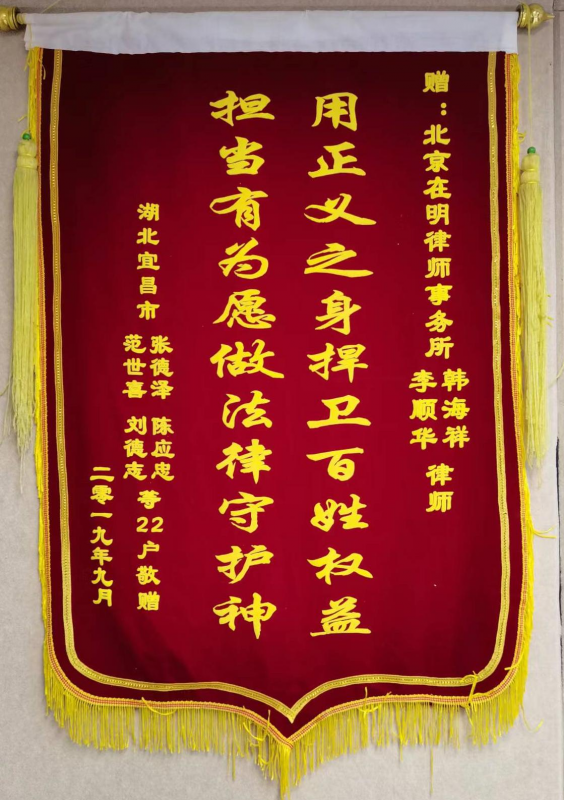 赠：北京在明律师事务所 韩海祥 李顺华 律师
用正义之身捍卫百姓权益
担当有为愿做法律守护神
湖北宜昌市 张德泽 陈应忠 范世喜 刘德志 等22户敬赠
二零一九年九月